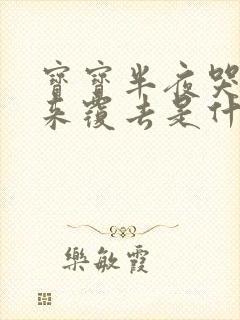 寶寶半夜哭
來覆去是什
樂敏霞